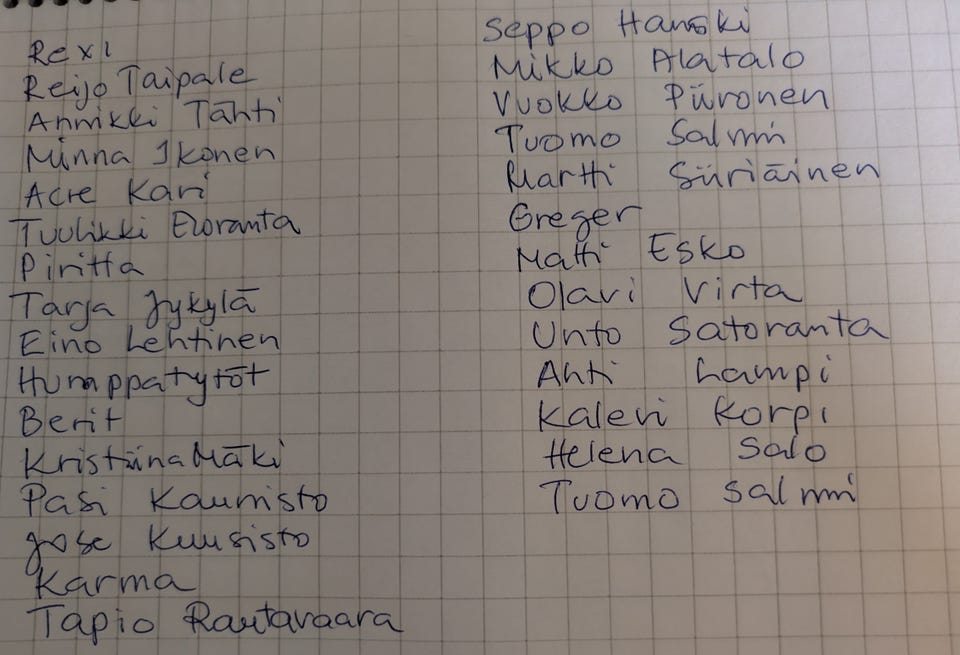 Rexi
Reijo Taipale
Annikki Tähti
Minna Ikonen
Acre Kari
Tuulikki Eloranta
Piritta
Tarja Jykylä
Eino Lehtinen
Humppatytöt
Berit
Kristiina Mäki
Pasi Kaunisto
Jose Kuusisto
Karma
Tapio Rautavaara
Seppo Hanski
Mikko Alatalo
Vuokko Piironen
Tuomo Salmi
Martti Siiriäinen
Greger
Matti Esko
Olavi Virta
Unto Satoranta
Ahti Lampi
Kalevi Korpi
Helena Salo
Tuomo Salmi